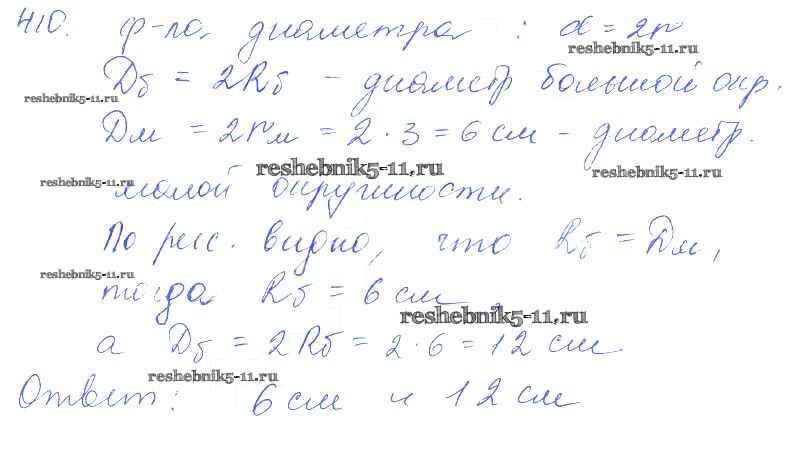 410. ф-ла диаметра : d = 2r
reshebnik5-11.ru
Dб = 2Rб - диаметр большой окр.
reshebnik5-11.ru
Dм = 2rм = 2 · 3 = 6 см - диаметр.
reshebnik5-11.ru reshebnik5-11.ru
reshebnik5-11.ru малой окружности.
По рис. видно, что Rб = Dм,
reshebnik5-11.ru
тогда Rб = 6 см
reshebnik5-11.ru
а Dб = 2Rб = 2 · 6 = 12 см.
reshebnik5-11.ru
Ответ: 6 см и 12 см